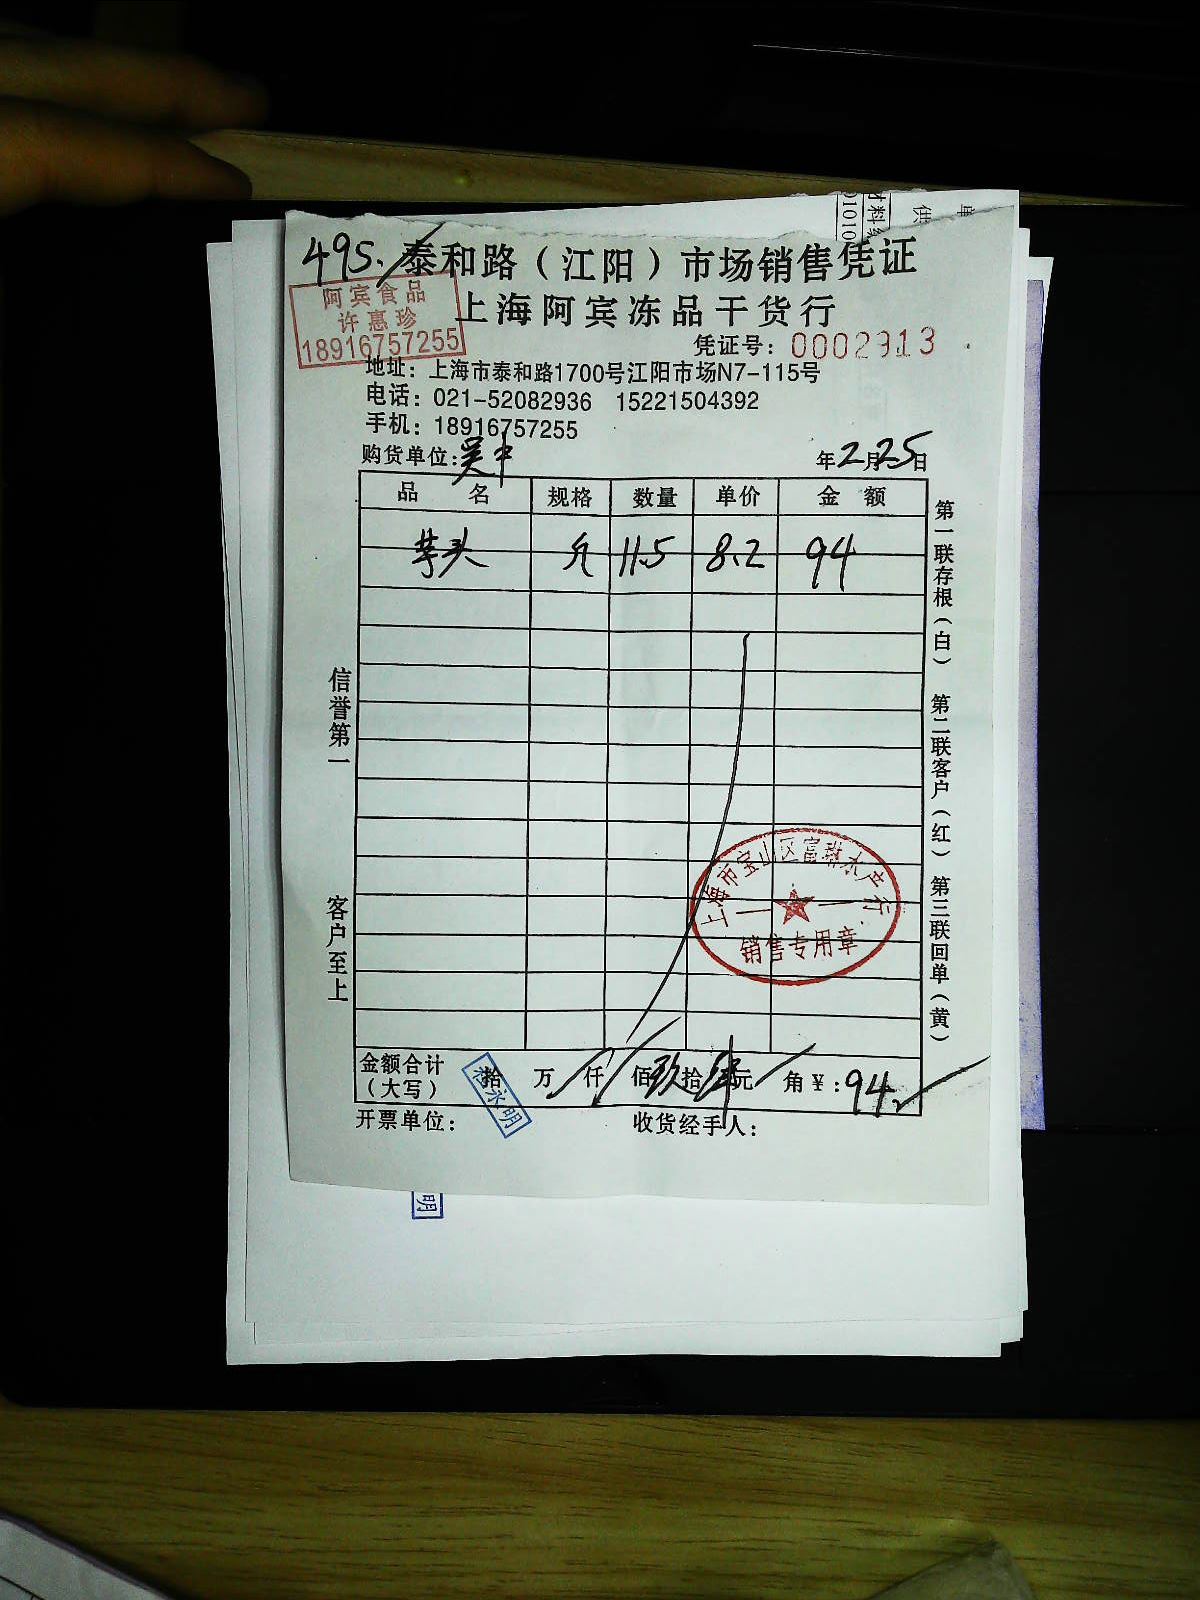 495.
泰和路（江阳）市场销售凭证
阿宾食品
许惠珍
18916757255
上海阿宾冻品干货行
凭证号：0002913
地址：上海市泰和路1700号江阳市场N7-115号
电话：021-52082936 15221504392
手机：18916757255
购货单位：吴中 年2月25日
品 名 规格 数量 单价 金 额
芋头 11.5 8.2 94
信誉第一
客户至上
第一联存根（白） 第二联客户（红） 第三联回单（黄）
上海市宝山区富琳水产行
销售专用章
金额合计（大写） 拾 万 仟 佰 玖拾肆元 角 ￥：94
永明
开票单位： 收货经手人：
明